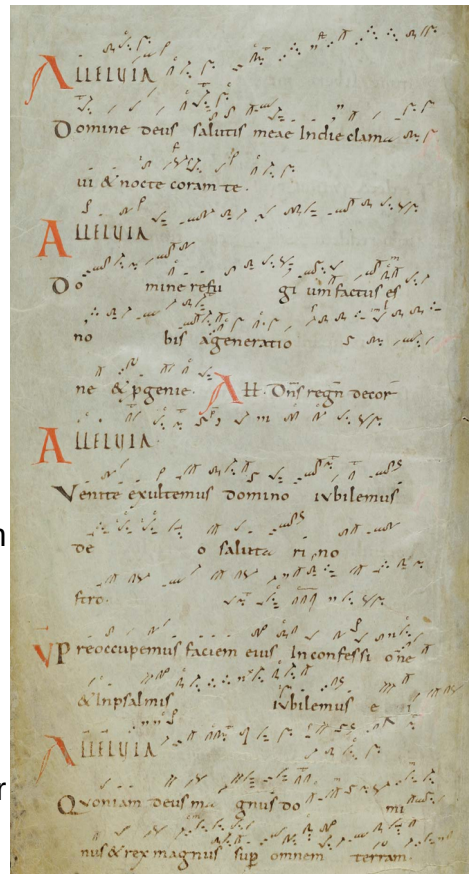 ALLELUIA
Domine deus salutis meae Indie clama
ui & nocte coram te.
ALLELUIA
Do mine refu gi um factus es
no bis ageneratio
ne & pgenie. All. Dns regn decor
ALLELUIA.
Venite exultemus domino iubilemus
de o saluta ri no
stro.
VPreoccupemus faciem eius Inconfessi one
& Inpsalmis iubilemus e i
ALLELUIA
Quoniam deus ma gnus do mi
nus & rex magnus sup omnem terram.